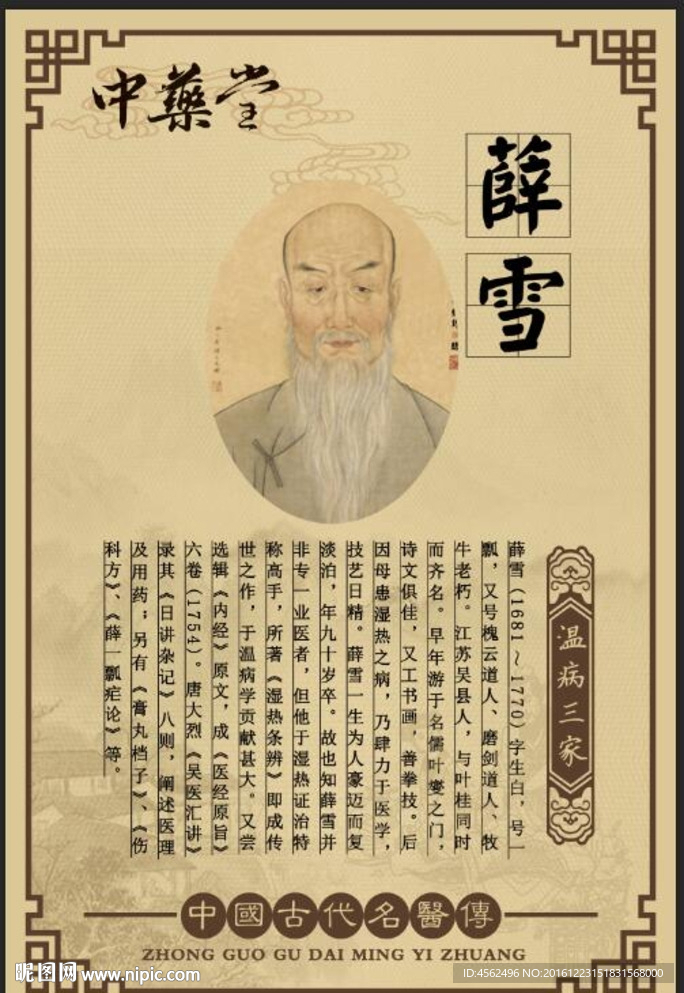 中藥堂
薛雪
温病三家
薛雪（1681～1770）字生白，号一
瓢，又号槐云道人、磨剑道人、牧
牛老朽。江苏吴县人，与叶桂同时
而齐名。早年游于名儒叶燮之门，
诗文俱佳，又工书画，善拳技。后
因母患湿热之病，乃肆力于医学，
技艺日精。薛雪一生为人豪迈而复
淡泊，年九十岁卒。故也知薛雪并
非专一业医者，但他于湿热证治特
称高手，所著《湿热条辨》即成传
世之作，于温病学贡献甚大。又尝
选辑《内经》原文，成《医经原旨》
六卷（1754）。唐大烈《吴医汇讲》
录其《日讲杂记》八则，阐述医理
及用药；另有《膏丸档子》、《伤
科方》、《薛一瓢疟论》等。
中國古代名醫傳
ZHONG GUO GU DAI MING YI ZHUANG
昵图网 www.nipic.com
ID:4562496 NO:20161223151831568000